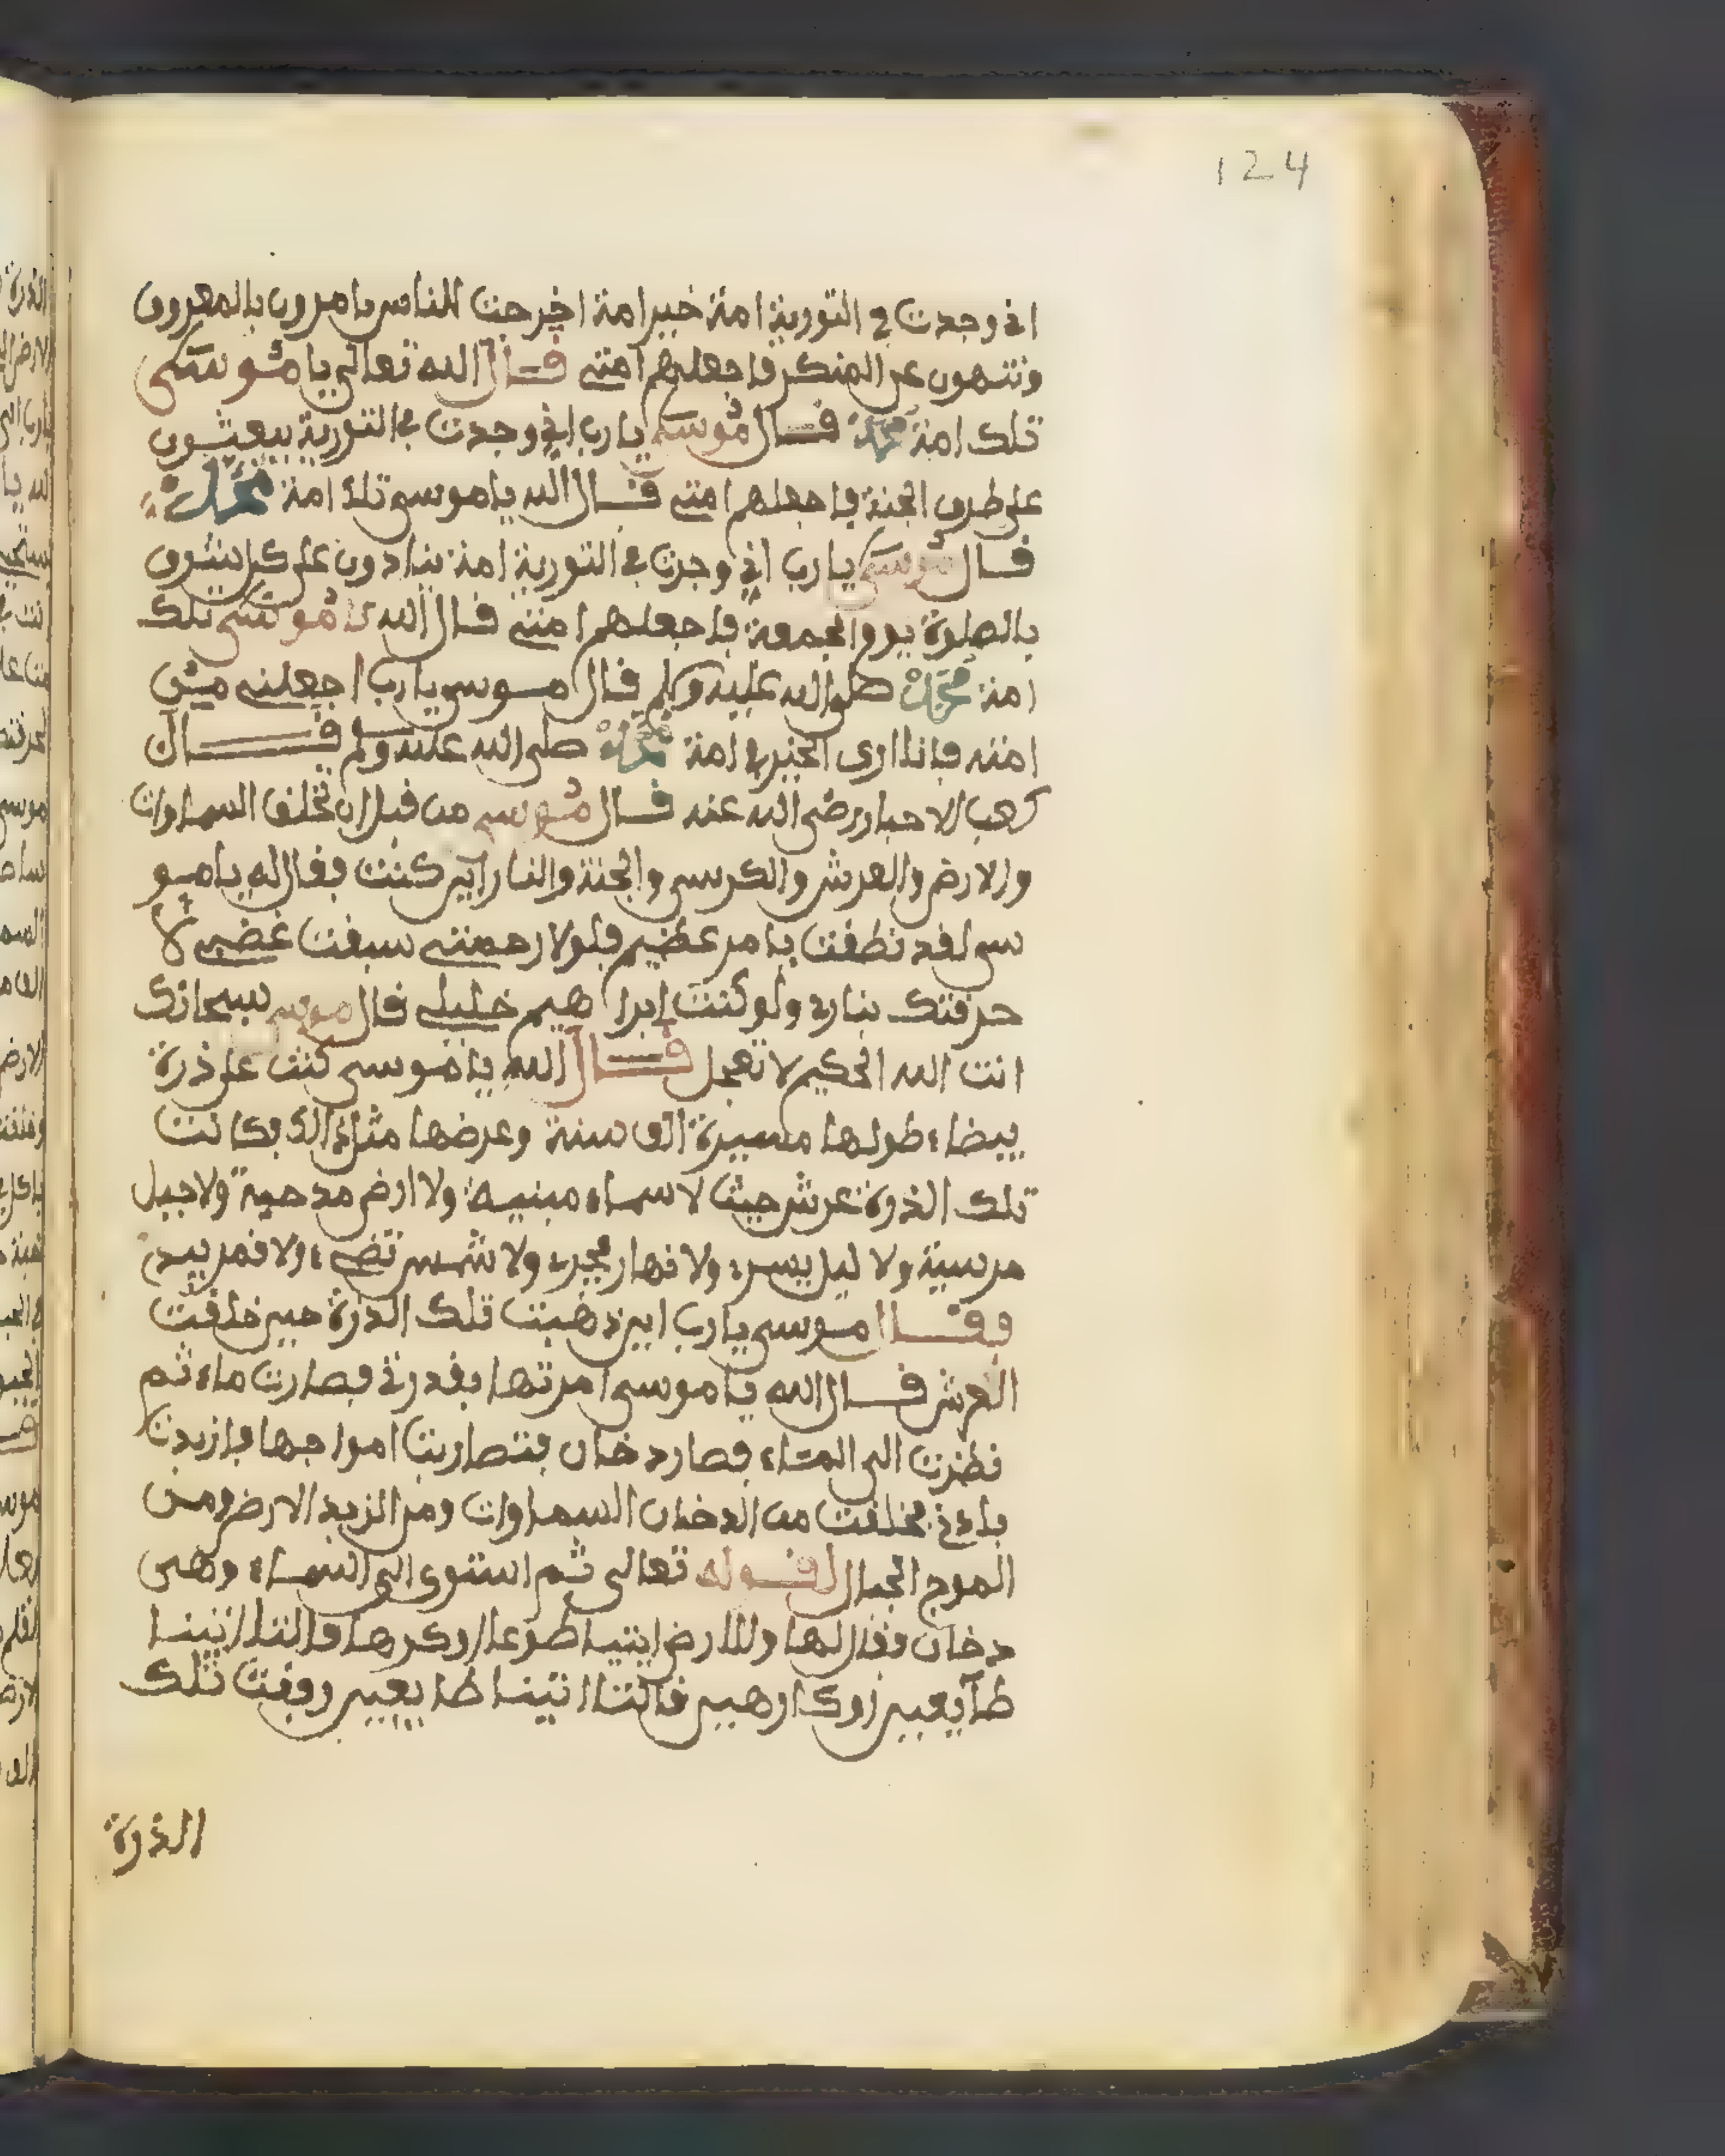 124
اني وجدت في التورية امة خير امة اخرجت للناس يامرون بالمعروف
وتنهون عن المنكر فاجعلهم امتي قال الله تعالى يا موسى
تلك امة محمد قال موسى يا رب اني وجدت في التورية يبعثون
على طرف الجنة فاجعلهم امتي قال الله يا موسى تلك امة محمد
قال موسى يا رب اني وجدت في التورية امة ينادون على كل
بالصلوة يوم الجمعة فاجعلهم امتي قال الله يا موسى تلك
امة محمد صلى الله عليه وسلم قال موسى يا رب اجعلني من
امته فانا ارى الخير في امة محمد صلى الله عليه ولم قال
كعب الاحبار رضي الله عنه قال موسى من قبل ان تخلق السماوات
والارض والعرش والكرسي والجنة والنار اين كنت فقال له يا مو
سى لقد نطقت بامر عظيم فلولا رحمتي سبقت غضبي لا
حرقتك بناري ولو كنت ابرا هيم خليلي قال موسى سبحانك
انت الله الحكيم لا تعجل قال الله يا موسى كنت على ذرة
بيضاء طولها مسيرة الف سنة وعرضها مثل ذالك فكانت
تلك الذرة عرش حيث لا سماء مبنية ولا ارض مدحية ولا جبل
مرسية ولا ليل يسري ولا نهار يجري ولا شمس تضيء ولا قمر يبدي
فقال موسى يا رب اين ذهبت تلك الذرة حين خلقت
العرش قال الله يا موسى امرتها بقدرتي فصارت ماء ثم
نظرت الى الماء فصار دخان فتضاربت امواجها فازبدت
باذني فخلقت من الدخان السماوات ومن الزبد الارض ومن
الموج الجبال لقوله تعالى ثم استوى الى السماء وهي
دخان فقال لها وللارض ايتيا طوعا او كرها قالتا اتينا
طآيعين او كارهين قالتا اتينا طايعين وقفت تلك
الذرة